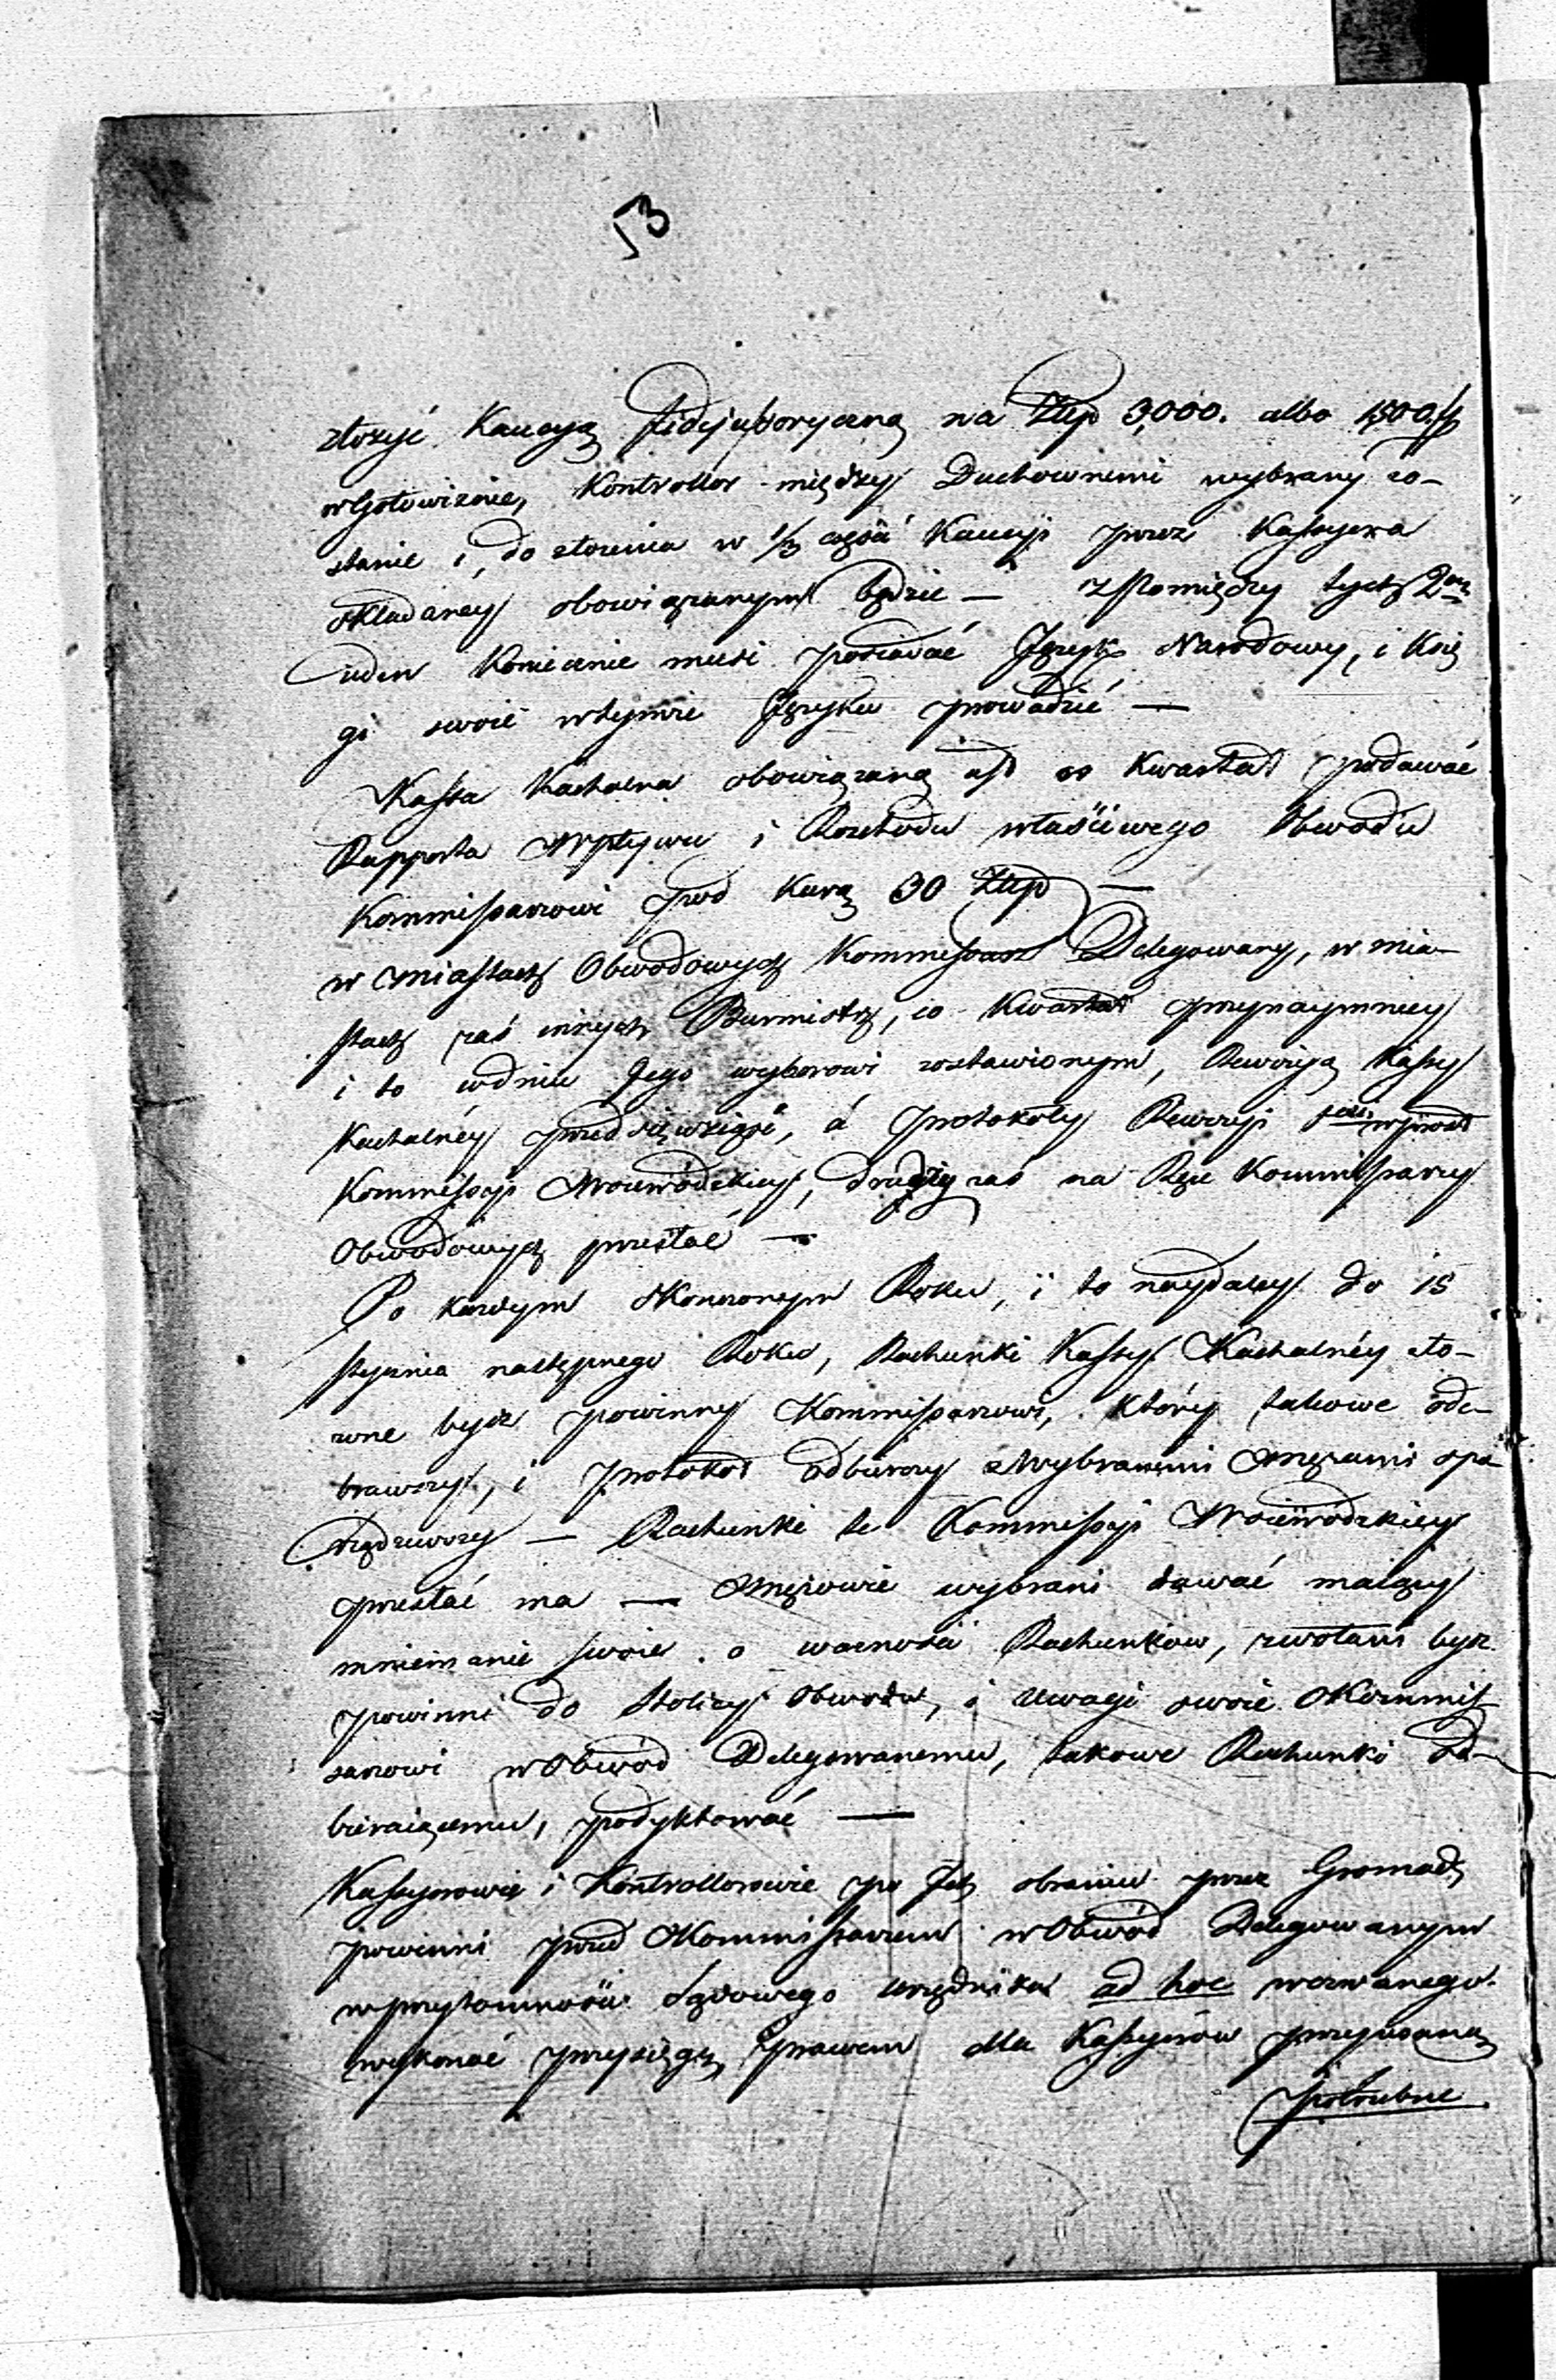 53
złożyć Kaucyą fidejussoryczną na Złłp 3,000. albo 1,500.
w Gotowiznie, Kontrollor między Duchownemi wybrany zo-
stanie i, do złożenia w 1/3 część Kaucyi przez Kassyera
składaney obowiązanym będzie — z Pomiędzy tych 2ch
ieden koniecznie musi posiadać Język Narodowy, i Księ
gi swoie w tymże Języku prowadzić —
Kassa Kachalna obowiązaną iest co Kwartał podawać
Rapporta Wpływu i Rozchodu właściwego Obwodu
Kommissarzowi pod karą 30 Złłp —
w Miastach Obwodowych Kommissarz Delegowany, w mia-
stach zaś innych Burmistrz, co Kwartał przynaymniey
i to w dniu Jego wyborowi zostawionym, Rewizyą Kassy
Kachalnéy przedsięwziąść, a Protokóły Rewizyi
Kommissyi Woiewódzkiey, drugi zaś na Ręce Kommissarzy
Obwodowych przesłać —
Po każdym skończonym Roku, i to naydaley do 15
stycznia następnego Roku, Rachunki Kassy Kachalnéy zło-
żone bydź powinny Kommissarzowi, który takowe ode-
brawszy, i Protokół odbiorczy z Wybranemi Mężami spo-
rządziwszy — Rachunki te Kommissyi Woiewódzkiey
przesłać ma — Mężowie wybrani dawać maiący
mniemanie swoie o ważności Rachunków, zwołani bydź
powinni do Stolicy Obwodu, i uwagi swoie Kommis-
sarzowi w Obwód Delegowanemu, takowe Rachunki od-
bieraiącemu, podyktować —
Kassyerowie i Kontrollorowie po Ich obraniu przez Gromadę
powinni przed Kommissarzem w Obwód Delegowanym
w przytomności Sądowego urzędnika ad hoc wezwanego
wykonać przysięgę prawem dla Kassyerów przepisaną
Potrzebne